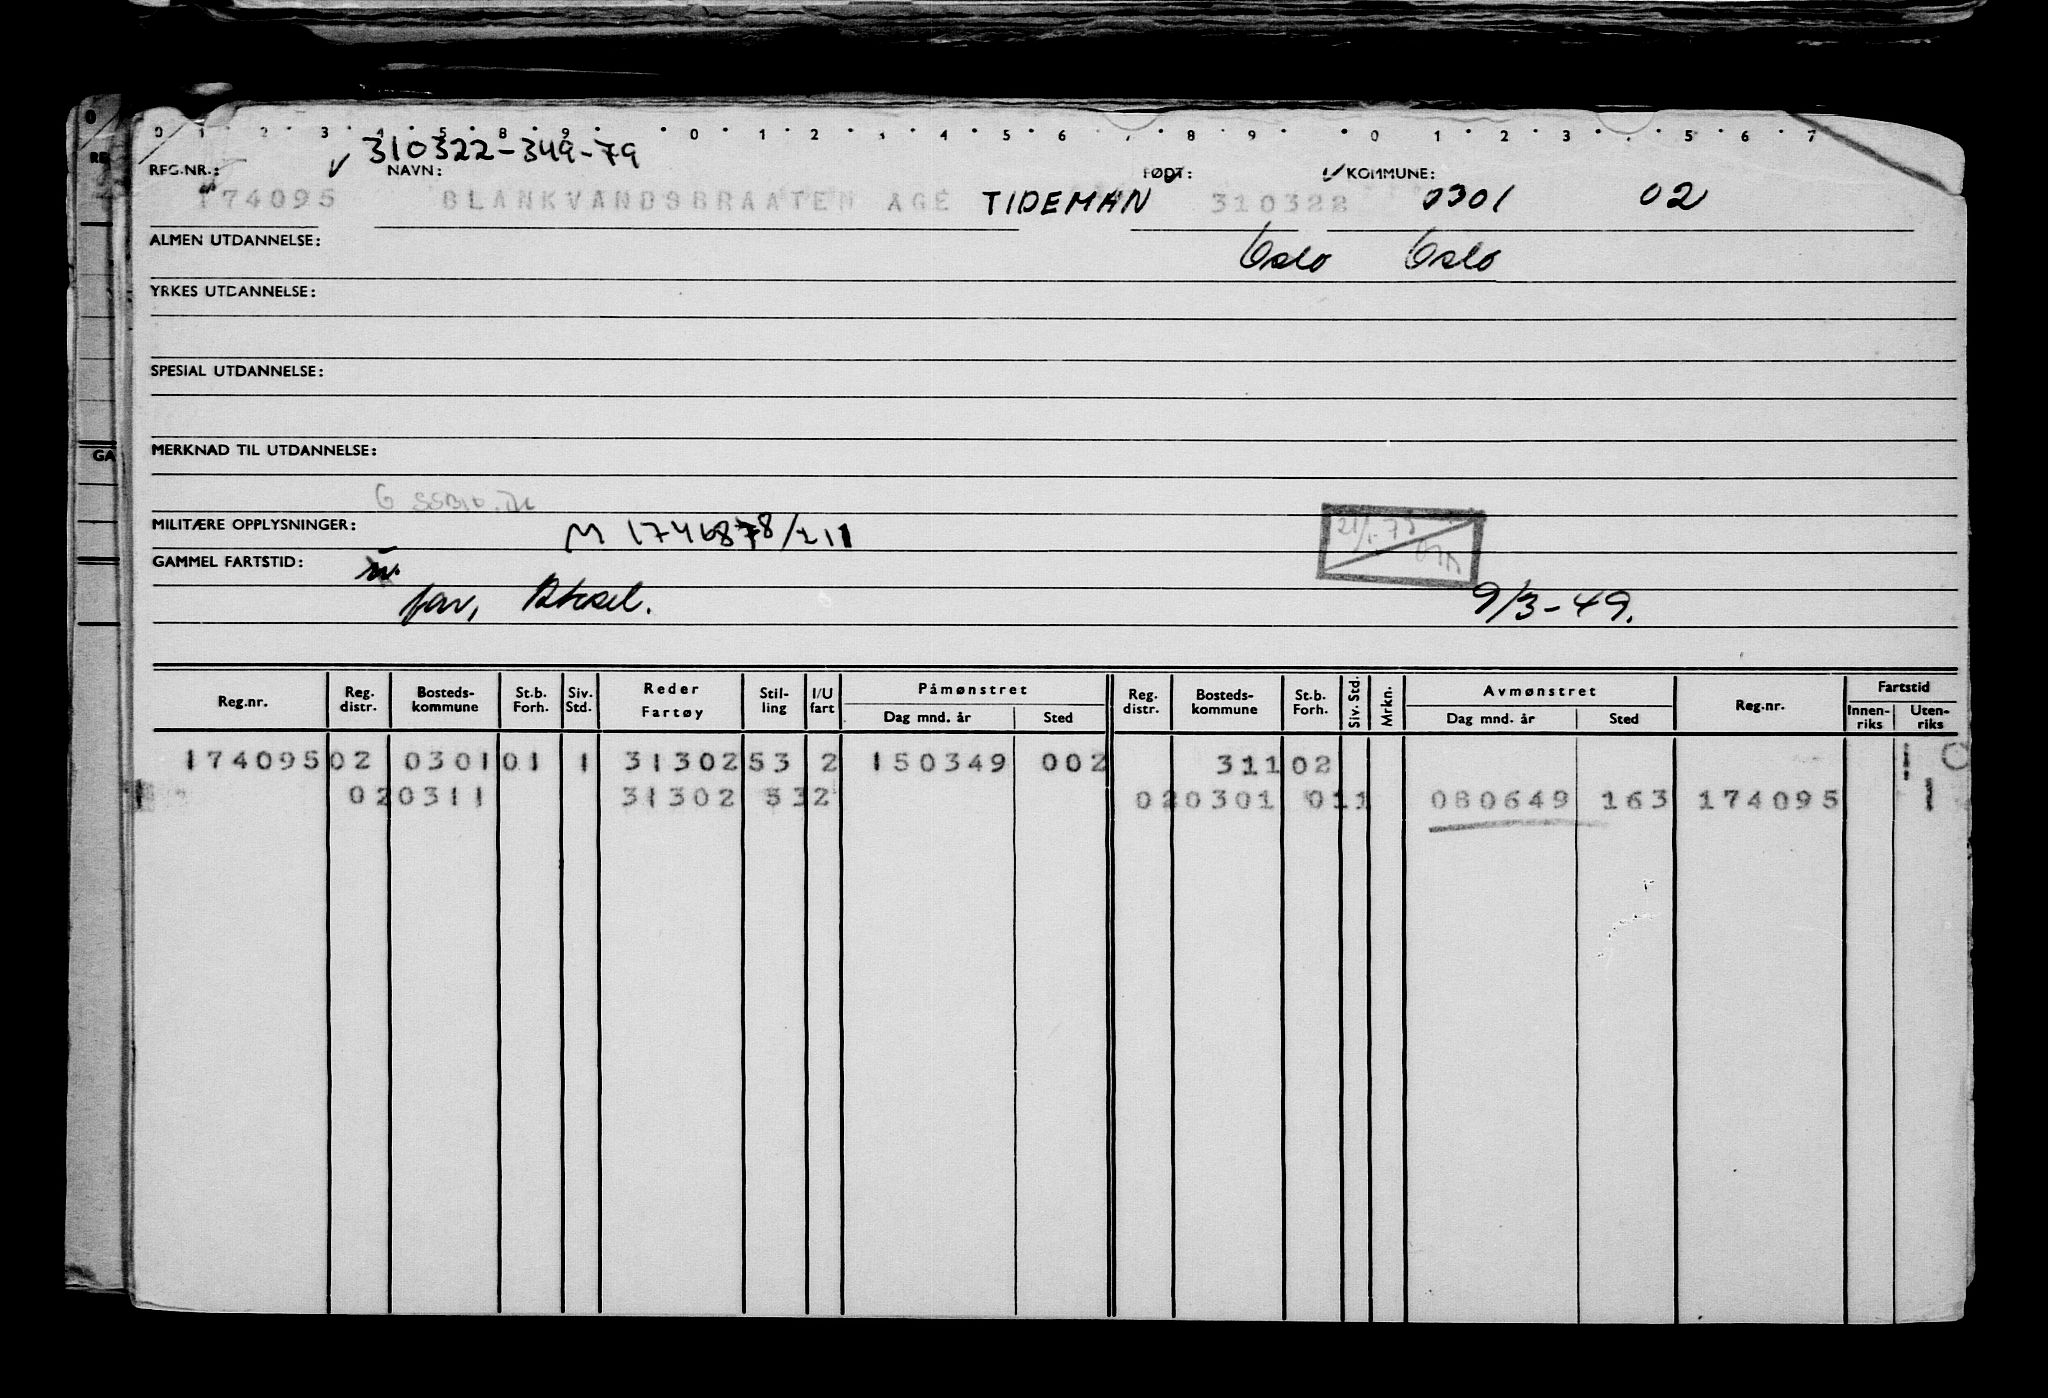 0 1 2 3 4 5 8 9 0 1 2 3 4 5 6 7 8 9 0 1 2 3 4 5 6 7
310322-349-79
REG.NR.: NAVN: FØDT: KOMMUNE:
174095 BLANKVANDSBRAATEN AGE TIDEMAN 310322 0301 02
ALMEN UTDANNELSE: Oslo Oslo
YRKES UTDANNELSE:
SPESIAL UTDANNELSE:
MERKNAD TIL UTDANNELSE:
MILITÆRE OPPLYSNINGER:
GAMMEL FARTSTID:
far, Aksel. 9/3-49.
Reg.nr. Reg. distr. Bosteds-kommune St.b. Forh. Siv. Std. Reder Fartøy Stil-ling I/U fart Påmønstret Dag mnd. år Sted Reg. distr. Bosteds-kommune St.b. Forh. Siv. Std. Mrkn. Avmønstret Dag mnd. år Sted Reg.nr. Fartstid Innen-riks Uten-riks
174095 02 0301 01 1 31302 53 2 150349 002 311 02 1 0
02 0311 31302 53 2 02 0301 01 1 080649 163 174095 1